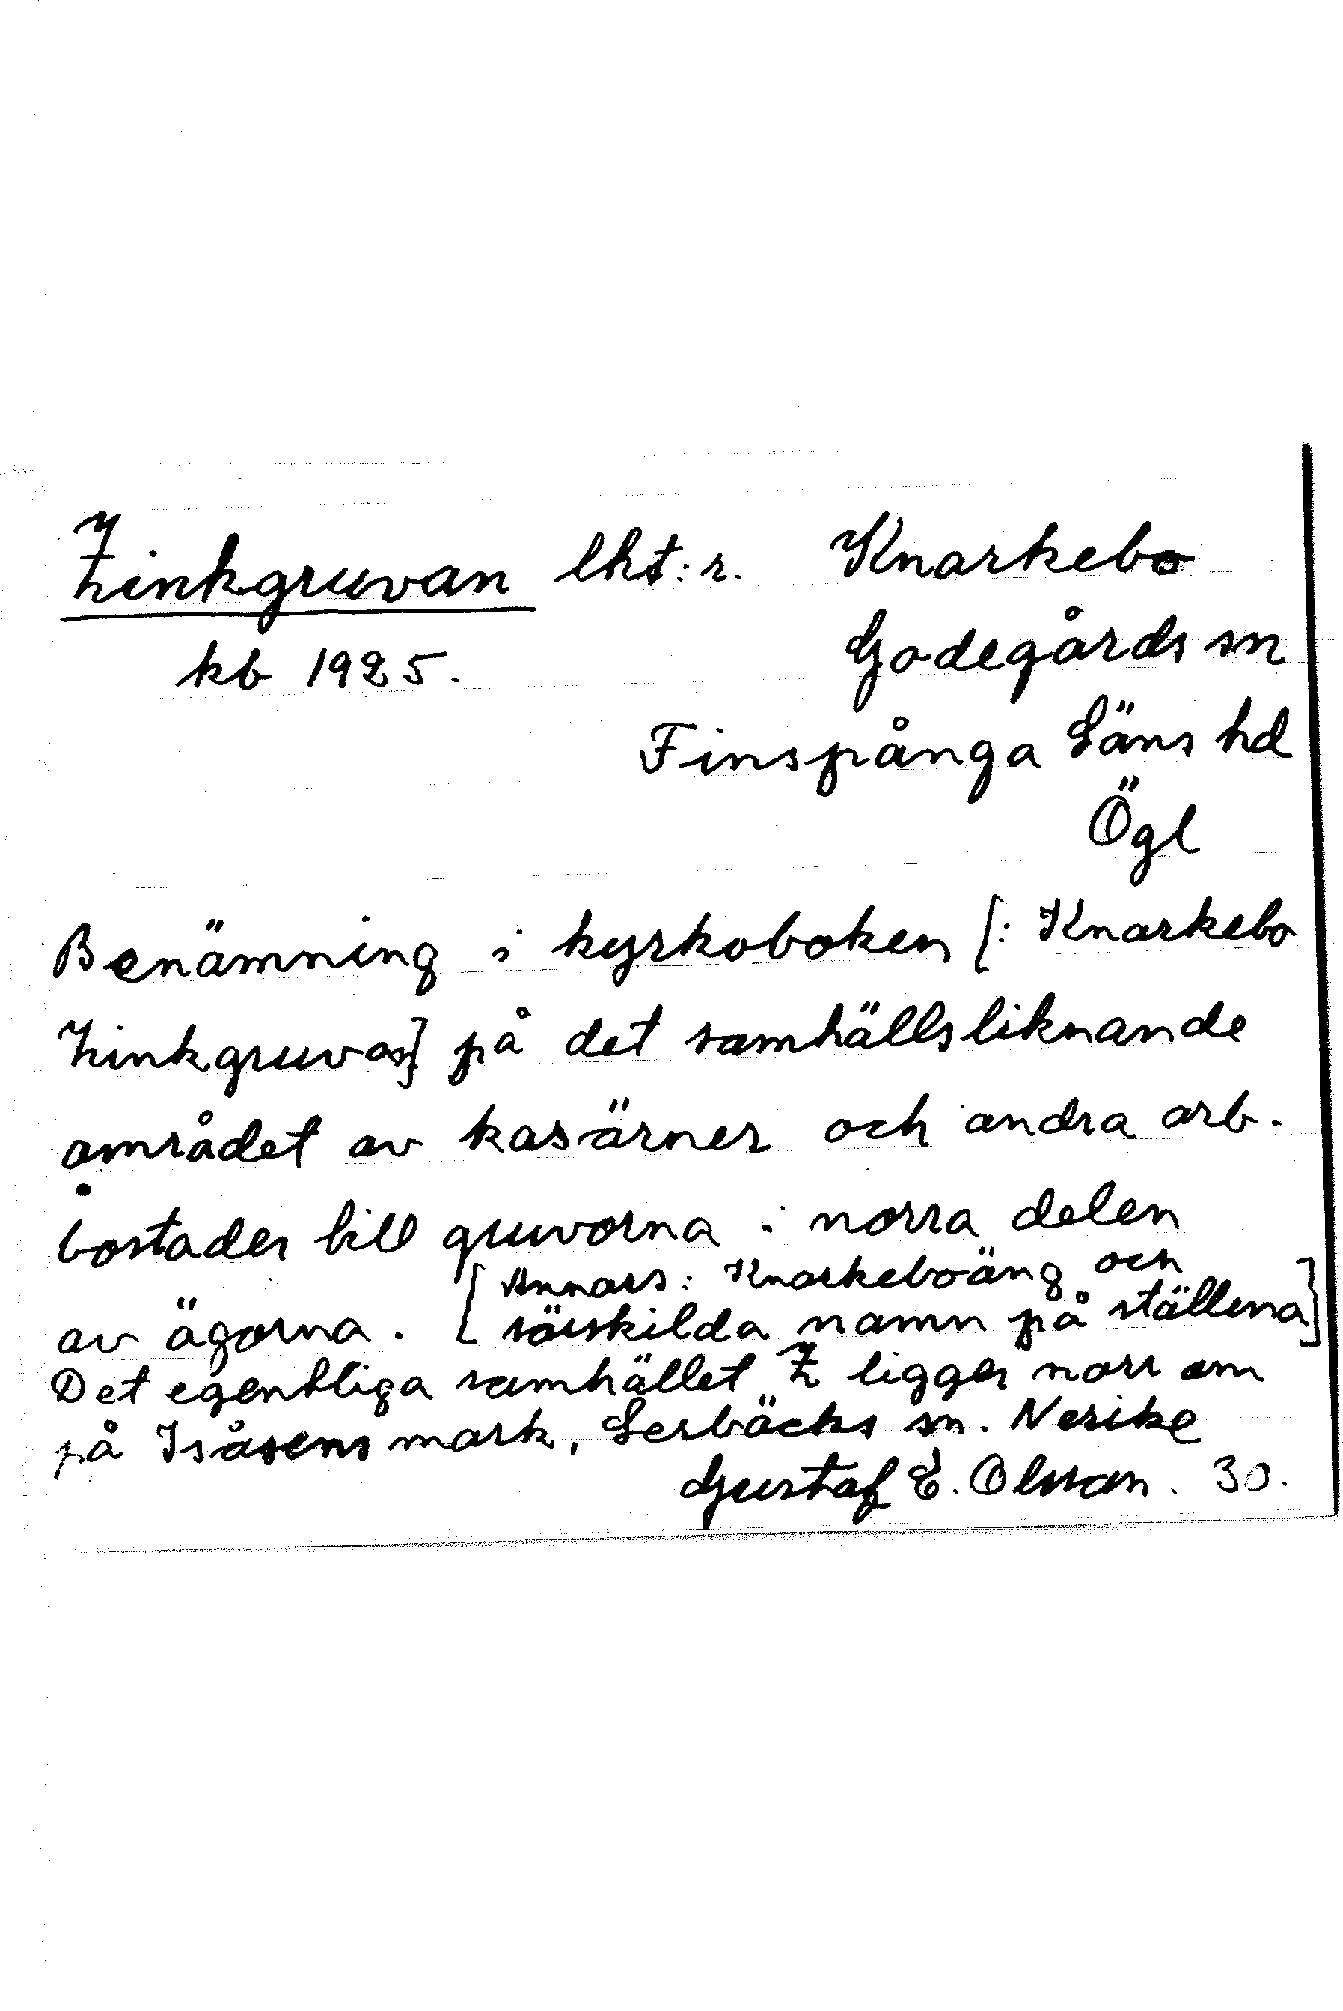 Zinkgruvan lht:r. Knarkebo
kb 1925. Godegårds sn
Finspånga Läns hd
Ögl
Benämning i kyrkoboken [: Knarkebo
Zinkgruvan] på det samhällsliknande
området av kasärner och andra arb.
bostäder till gruvorna i norra delen
av ägorna. [Annars: Knarkeboäng och
särskilda namn på ställena]
Det egentliga samhället Z ligger norr om
på Isåsens mark, Lerbäcks sn. Nerike
Gustaf E. Olsson. 30.